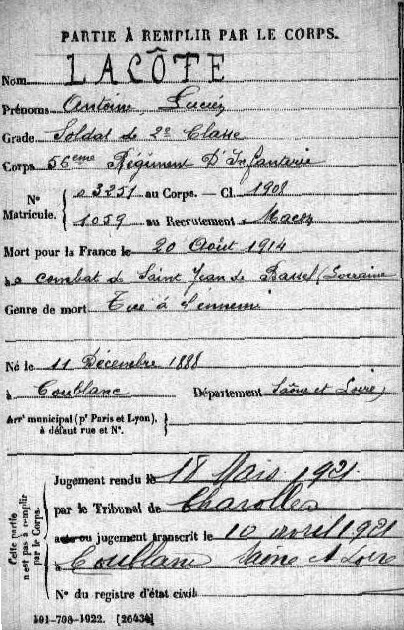 PARTIE À REMPLIR PAR LE CORPS.
Nom LACÔTE
Prénoms Antoine, Lucien
Grade Soldat de 2e Classe
Corps 56eme Régiment D'Infanterie
N° Matricule. { 03251 au Corps. — Cl. 1908
1059 au Recrutement Macon
Mort pour la France le 20 Août 1914
à combat de Saint Jean de Bassel (Lorraine
Genre de mort Tué à l'ennemi
Né le 11 Décembre 1888
à Coublanc Département Saône et Loire
Arrt municipal (pr Paris et Lyon), à défaut rue et N°. }
Cette partie n'est pas à remplir par le Corps.
Jugement rendu le 18 Mars 1921
par le Tribunal de Charolles
acte ou jugement transcrit le 10 avril 1921
à Coublanc Saône et Loire
N° du registre d'état civil
101-708-1922. [26434]